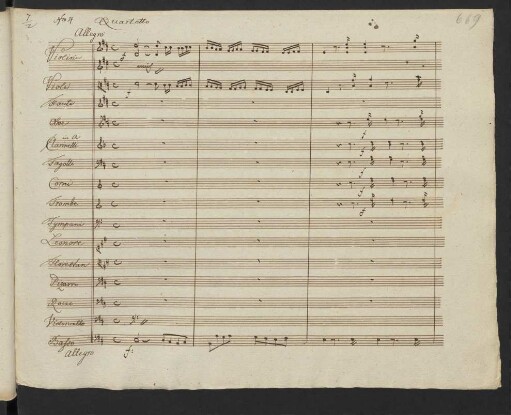 No. 14 Quartetto 669
Allegro
Violini
Viola
Flauto
Oboe
in A
Clarinetti
Fagotti
Corni
Trombe
Tympani
Leonore
Florestan
Pizarro
Rocco
Violoncello
Basso
Allegro